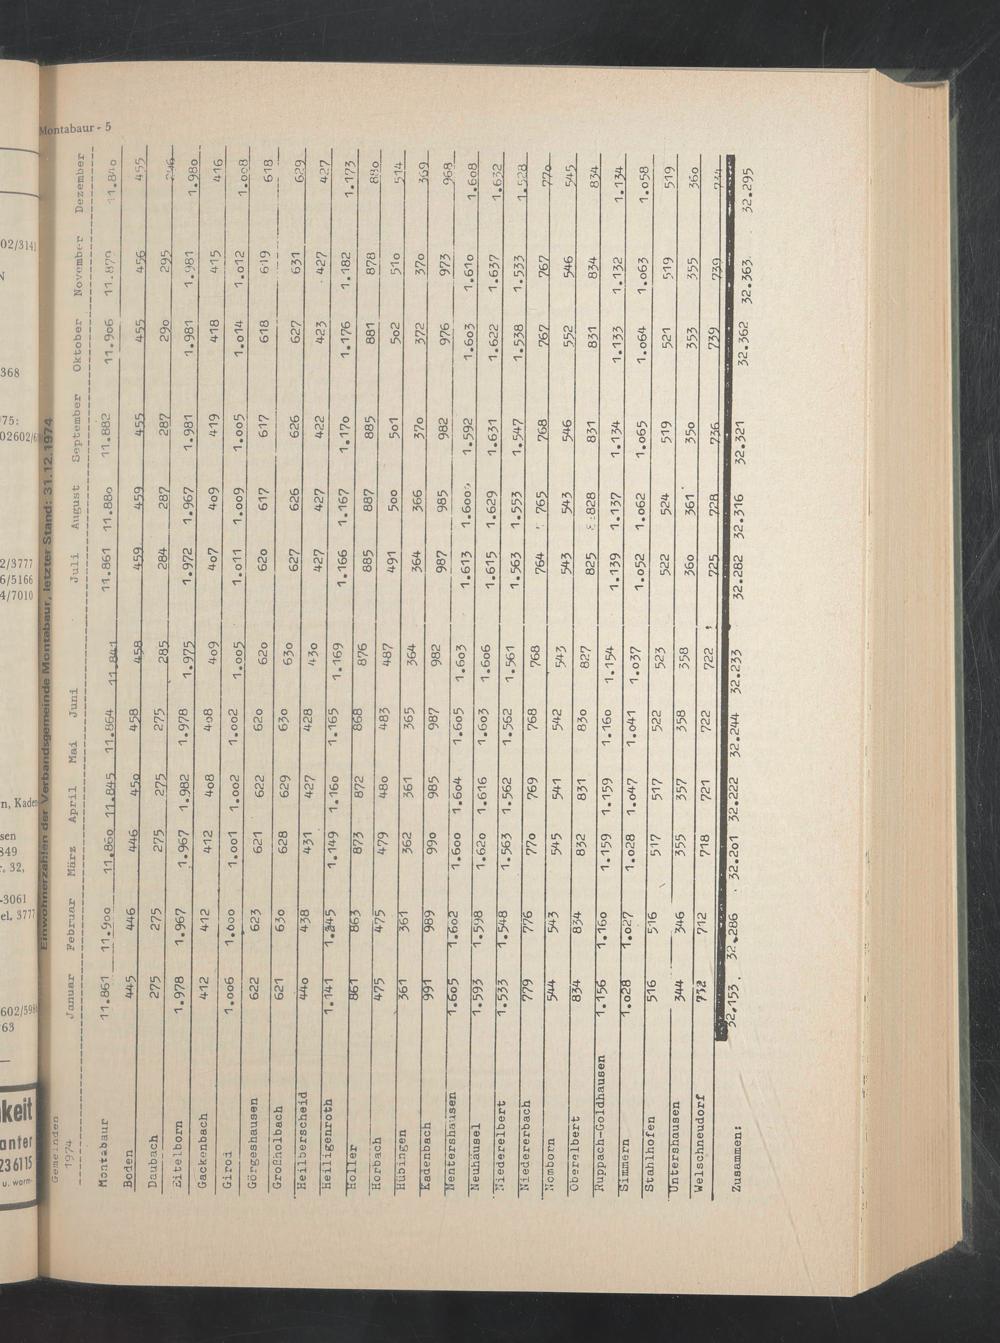 Montabaur - 5
Einwohnerzahlen der Verbandsgemeinde Montabaur, letzter Stand: 31.12.1974
Gemeinden
1974 Januar Februar März April Mai Juni Juli August September Oktober November Dezember
Montabaur 11.861 11.900 11.860 11.845 11.864 11.841 11.861 11.880 11.882 11.906 11.879
Boden 445 446 446 450 458 458 459 459 455 455 456 455
Daubach 275 275 275 275 275 285 284 287 287 290 295
Eitelborn 1.978 1.967 1.967 1.982 1.978 1.975 1.972 1.967 1.981 1.981 1.981 1.980
Gackenbach 412 412 412 408 408 409 407 409 419 418 415 416
Girod 1.006 1.000 1.001 1.002 1.002 1.005 1.011 1.009 1.005 1.014 1.012 1.008
Görgeshausen 622 623 621 622 620 620 620 617 617 618 619 618
Großholbach 621 630 628 629 630 630 627 626 626 627 631 629
Heilberscheid 440 438 431 427 428 430 427 427 422 423 427 427
Heiligenroth 1.141 1.145 1.149 1.160 1.165 1.169 1.166 1.167 1.170 1.176 1.182 1.173
Holler 861 863 873 872 868 876 885 887 885 881 878 880
Horbach 475 475 479 480 483 487 491 500 501 502 510 514
Hübingen 361 361 362 361 365 364 364 366 370 372 370 369
Kadenbach 991 989 990 985 987 982 987 985 982 976 973 968
Nentershausen 1.605 1.602 1.600 1.604 1.605 1.603 1.613 1.600 1.592 1.603 1.610 1.608
Neuhäusel 1.593 1.598 1.620 1.616 1.603 1.606 1.615 1.629 1.631 1.622 1.637 1.632
Niederelbert 1.533 1.548 1.563 1.562 1.562 1.561 1.563 1.553 1.547 1.538 1.533 1.528
Niedererbach 779 776 770 769 768 768 764 765 768 767 767 770
Nomborn 544 543 545 541 542 543 543 543 546 552 546 545
Oberelbert 834 834 832 831 830 827 825 828 831 831 834 834
Ruppach-Goldhausen 1.156 1.160 1.159 1.159 1.160 1.154 1.139 1.137 1.134 1.133 1.132 1.134
Simmern 1.028 1.027 1.028 1.047 1.041 1.037 1.052 1.062 1.065 1.064 1.063 1.058
Stahlhofen 516 516 517 517 522 523 522 524 519 521 519 519
Untershausen 344 346 355 357 358 358 360 361 350 353 355 360
Welschneudorf 732 712 718 721 722 722 725 728 736 739 739 734
Zusammen: 32.153 32.286 32.201 32.222 32.244 32.233 32.282 32.316 32.321 32.362 32.363 32.295
02/3141
368
75:
2/3777
6/5166
4/7010
n, Kaden
sen
849
. 32,
-3061
el. 3777
63
keit
anter
236115
u. worm-